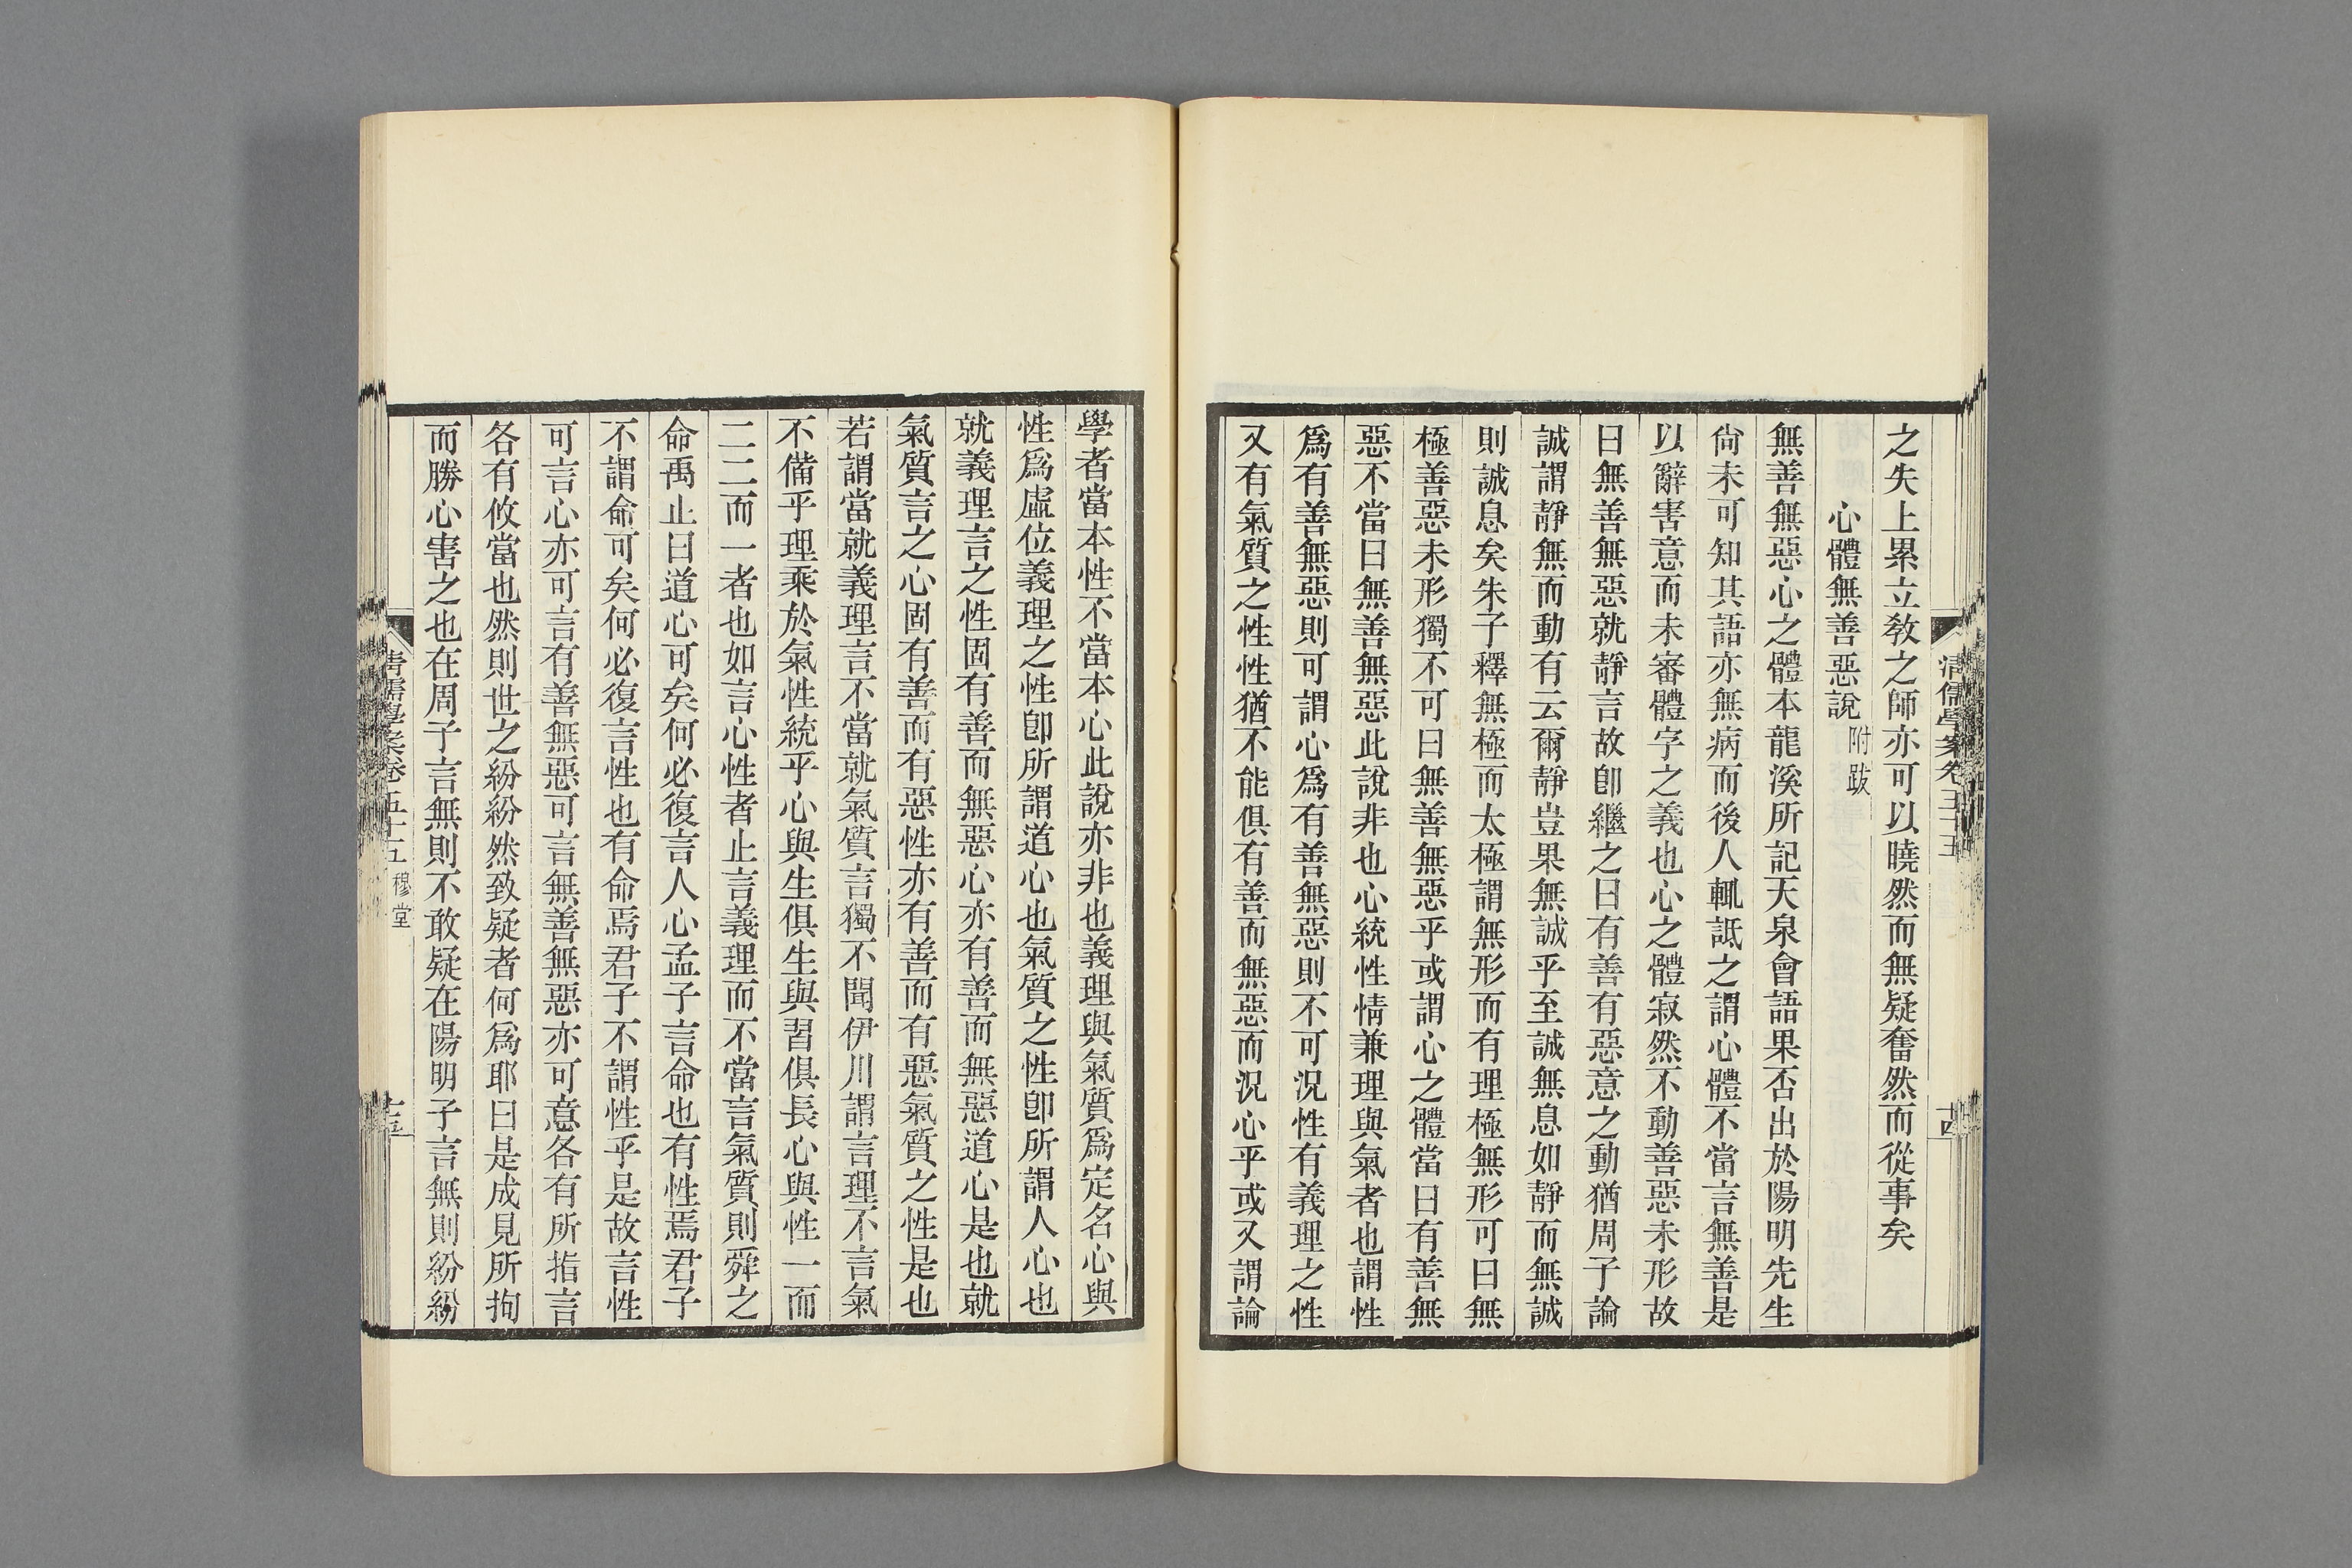 之失上累立敎之師亦可以曉然而無疑奮然而從事矣
心體無善惡說附跋
無善無惡心之體本龍溪所記天泉會語果否出於陽明先生
尙未可知其語亦無病而後人輒詆之謂心體不當言無善是
以辭害意而未審體字之義也心之體寂然不動善惡未形故
曰無善無惡就靜言故卽繼之曰有善有惡意之動猶周子論
誠謂靜無而動有云爾靜豈果無誠乎至誠無息如靜而無誠
則誠息矣朱子釋無極而太極謂無形而有理極無形可曰無
極善惡未形獨不可曰無善無惡乎或謂心之體當曰有善無
惡不當曰無善無惡此說非也心統性情兼理與氣者也謂性
爲有善無惡則可謂心爲有善無惡則不可況性有義理之性
又有氣質之性性猶不能俱有善而無惡而況心乎或又謂論
清儒學案卷五十五
十四
學者當本性不當本心此說亦非也義理與氣質爲定名心與
性爲虛位義理之性卽所謂道心也氣質之性卽所謂人心也
就義理言之性固有善而無惡心亦有善而無惡道心是也就
氣質言之心固有善而有惡性亦有善而有惡氣質之性是也
若謂當就義理言不當就氣質言獨不聞伊川謂言理不言氣
不備乎理乘於氣性統乎心與生俱生與習俱長心與性一而
二二而一者也如言心性者止言義理而不當言氣質則舜之
命禹止曰道心可矣何必復言人心孟子言命也有性焉君子
不謂命可矣何必復言性也有命焉君子不謂性乎是故言性
可言心亦可言有善無惡可言無善無惡亦可意各有所指言
各有攸當也然則世之紛紛然致疑者何爲耶曰是成見所拘
而勝心害之也在周子言無則不敢疑在陽明子言無則紛紛
清儒學案卷五十五 穆堂